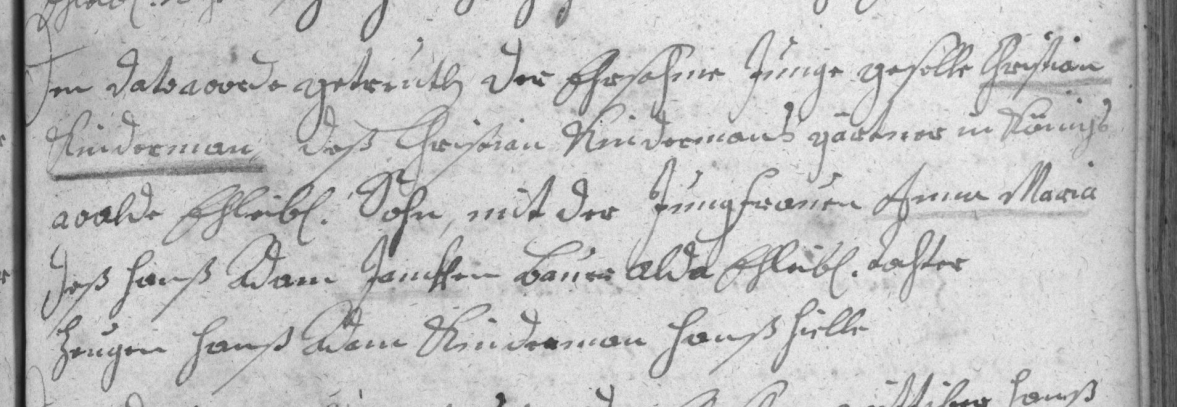 In dato worde getreuth der Ehrsahme Junge geselle Christian
Kinderman, deß Christian Kindermans gärtner in Königs
walde Ehleibl. Sohn, mit der Jungfrauen Anna Maria
deß Hanß Adam bauer alda Ehleibl. tochter
Zeugen Hanß Adam Kinderman Hanß Hielle
Hanß